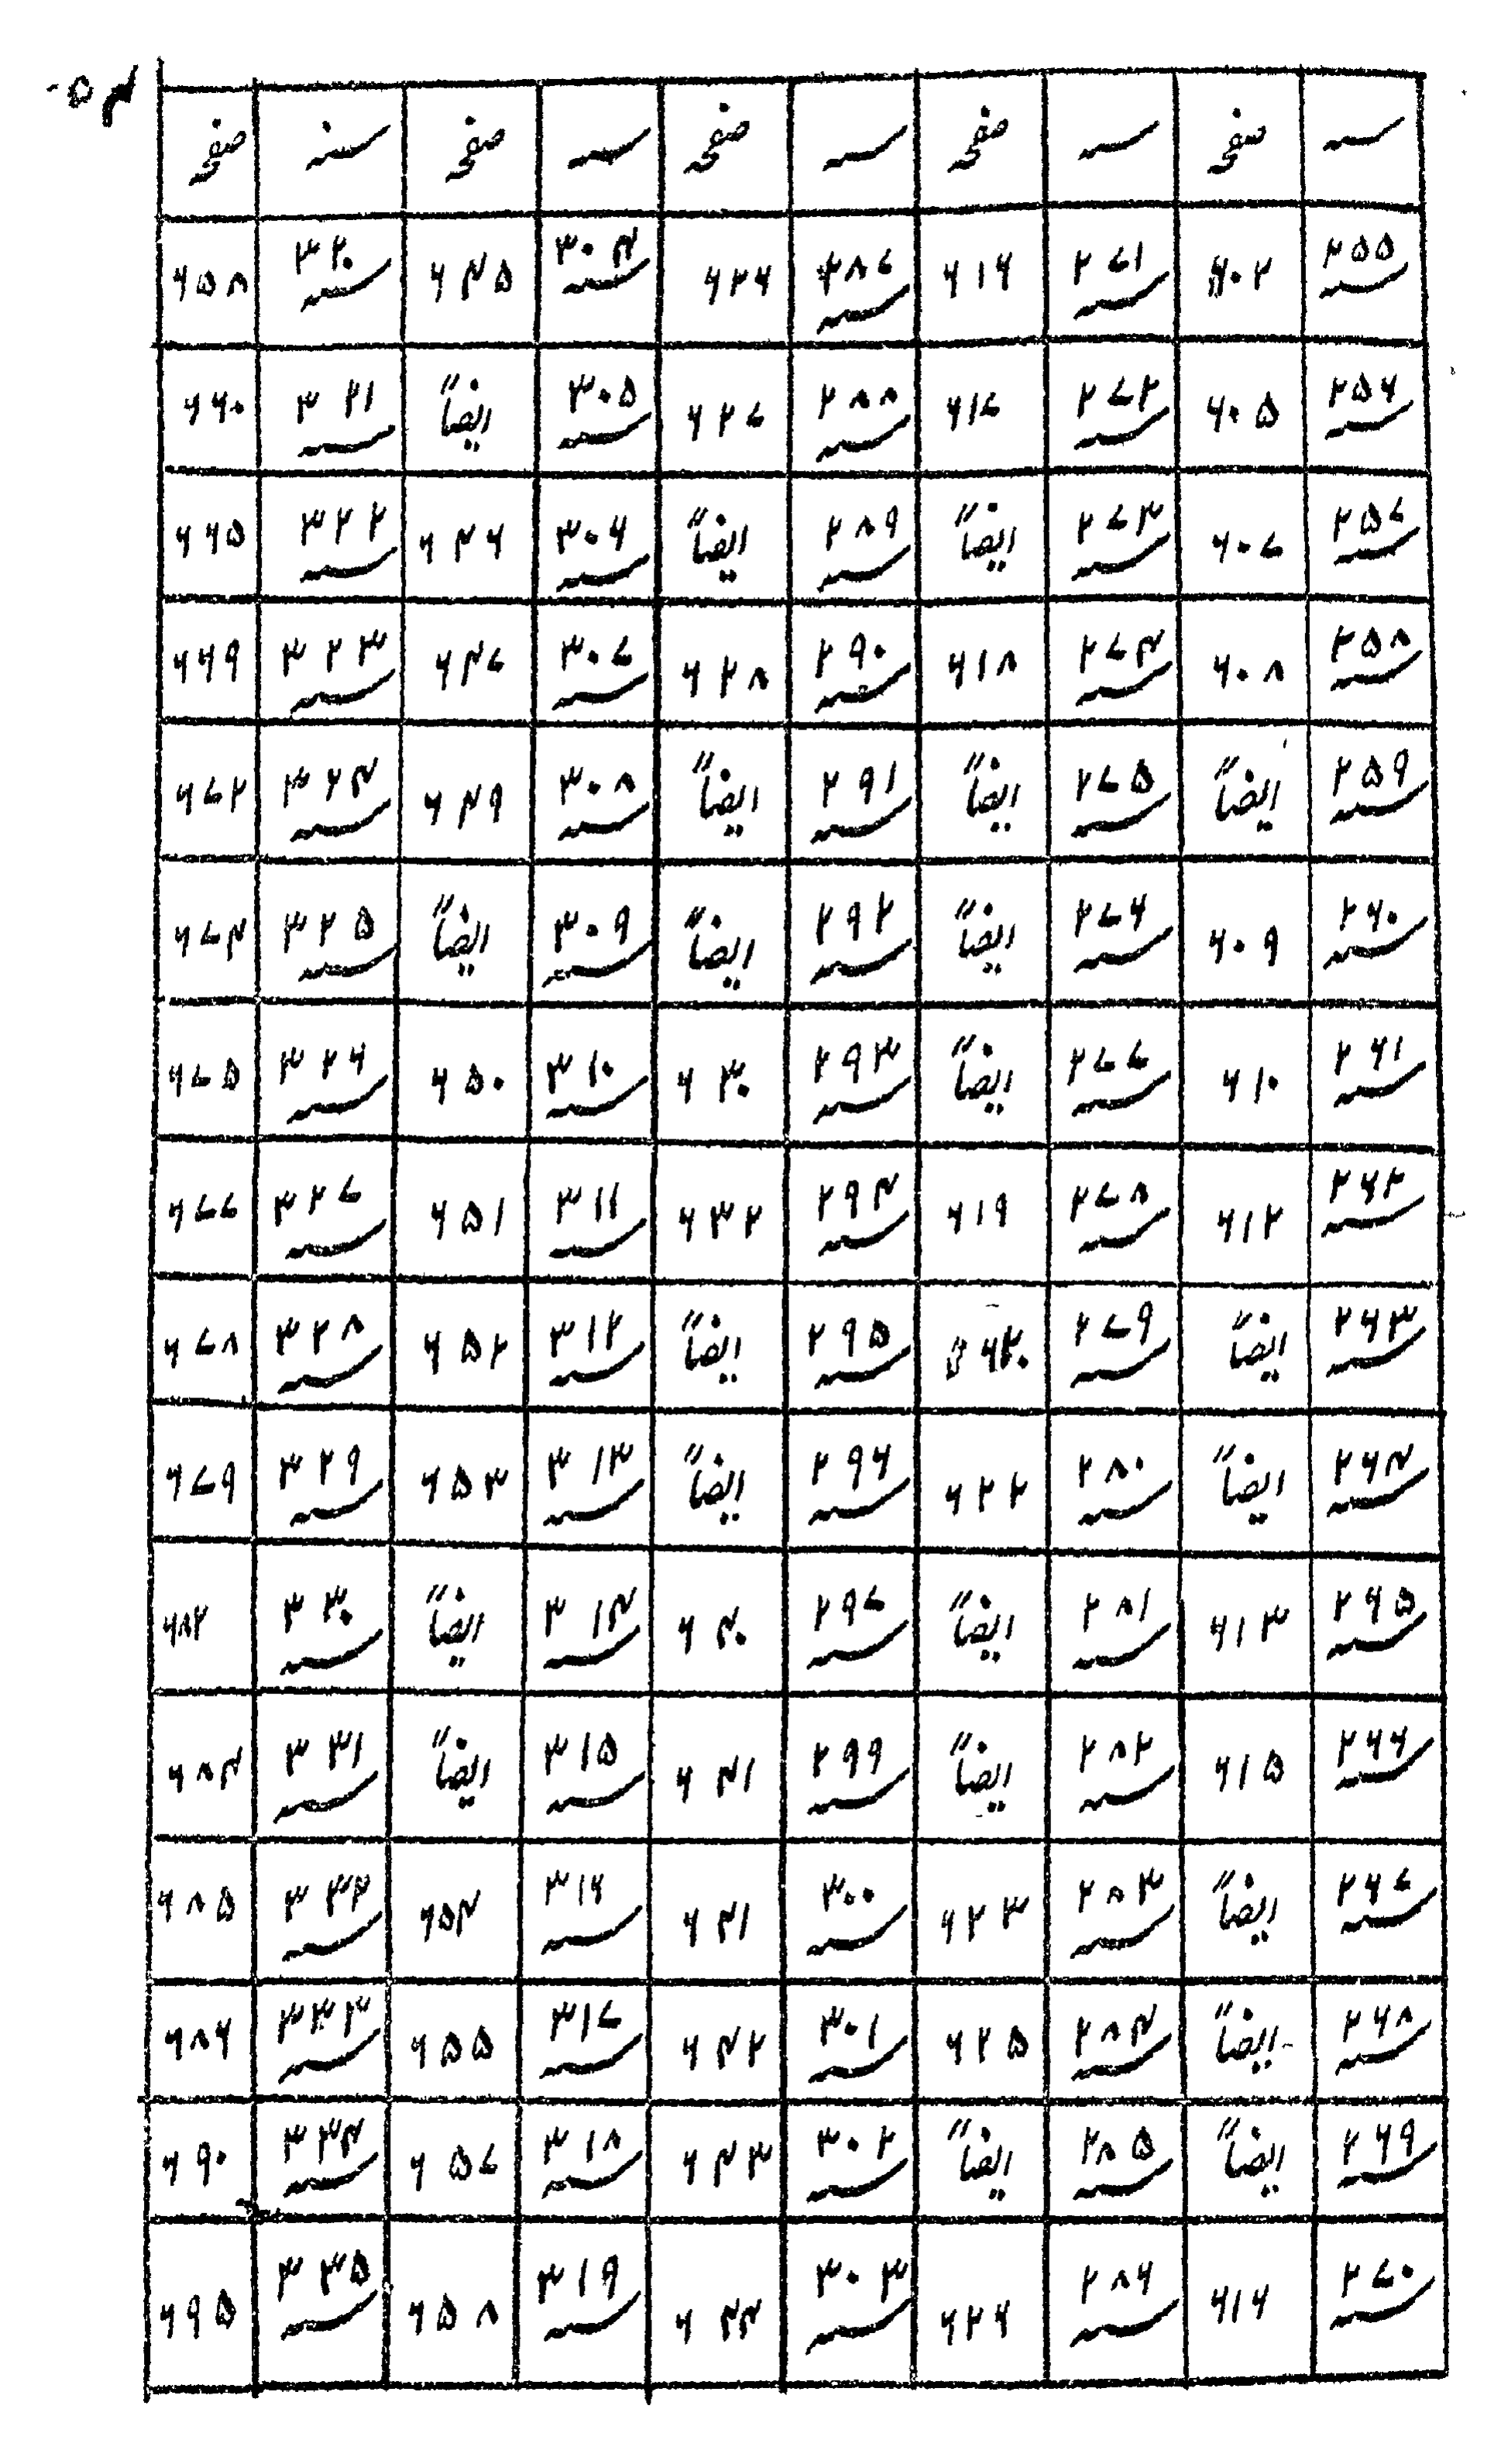 سنہ صفحہ سنہ صفحہ سنہ صفحہ سنہ صفحہ سنہ صفحہ
۲۵۵ ۶۰۲ ۲۷۱ ۶۱۶ ۲۸۷ ۶۲۶ ۳۰۴ ۶۴۵ ۳۲۰ ۶۵۸
۲۵۶ ۶۰۵ ۲۷۲ ۶۱۷ ۲۸۸ ۶۲۷ ۳۰۵ ایضاً ۳۲۱ ۶۶۰
۲۵۷ ۶۰۷ ۲۷۳ ایضاً ۲۸۹ ایضاً ۳۰۶ ۶۴۶ ۳۲۲ ۶۶۵
۲۵۸ ۶۰۸ ۲۷۴ ۶۱۸ ۲۹۰ ۶۲۸ ۳۰۷ ۶۴۷ ۳۲۳ ۶۶۹
۲۵۹ ایضاً ۲۷۵ ایضاً ۲۹۱ ایضاً ۳۰۸ ۶۴۹ ۳۲۴ ۶۷۲
۲۶۰ ۶۰۹ ۲۷۶ ایضاً ۲۹۲ ایضاً ۳۰۹ ایضاً ۳۲۵ ۶۷۴
۲۶۱ ۶۱۰ ۲۷۷ ایضاً ۲۹۳ ۶۳۰ ۳۱۰ ۶۵۰ ۳۲۶ ۶۷۵
۲۶۲ ۶۱۲ ۲۷۸ ۶۱۹ ۲۹۴ ۶۳۲ ۳۱۱ ۶۵۱ ۳۲۷ ۶۷۷
۲۶۳ ایضاً ۲۷۹ ۶۲۰ ۲۹۵ ایضاً ۳۱۲ ۶۵۲ ۳۲۸ ۶۷۸
۲۶۴ ایضاً ۲۸۰ ۶۲۲ ۲۹۶ ایضاً ۳۱۳ ۶۵۳ ۳۲۹ ۶۷۹
۲۶۵ ۶۱۳ ۲۸۱ ایضاً ۲۹۷ ۶۴۰ ۳۱۴ ایضاً ۳۳۰ ۶۸۲
۲۶۶ ۶۱۵ ۲۸۲ ایضاً ۲۹۹ ۶۴۱ ۳۱۵ ایضاً ۳۳۱ ۶۸۴
۲۶۷ ایضاً ۲۸۳ ۶۲۳ ۳۰۰ ۶۴۱ ۳۱۶ ۶۵۴ ۳۳۲ ۶۸۵
۲۶۸ ایضاً ۲۸۴ ۶۲۵ ۳۰۱ ۶۴۲ ۳۱۷ ۶۵۵ ۳۳۳ ۶۸۶
۲۶۹ ایضاً ۲۸۵ ایضاً ۳۰۲ ۶۴۳ ۳۱۸ ۶۵۷ ۳۳۴ ۶۹۰
۲۷۰ ۶۱۶ ۲۸۶ ۶۲۶ ۳۰۳ ۶۴۴ ۳۱۹ ۶۵۸ ۳۳۵ ۶۹۵